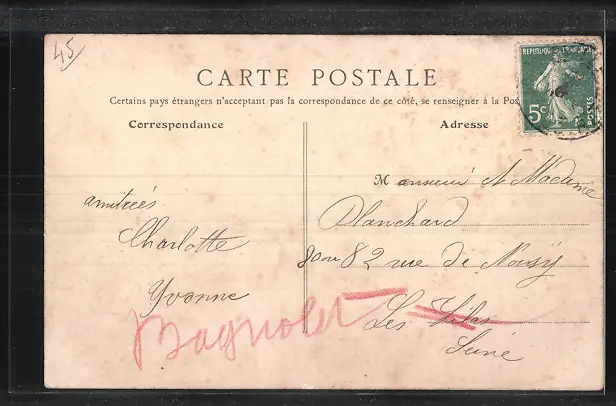 45
REPUBLIQUE FRANÇAISE
5c
POSTES
CARTE POSTALE
Certains pays étrangers n'acceptant pas la correspondance de ce côté, se renseigner à la Pos
Correspondance
Adresse
amitiés
Charlotte
Yvonne
Monsieur et Madame
Blanchard
80 ou 82 rue de Noisy
Les Lilas
Seine
Bagnolet